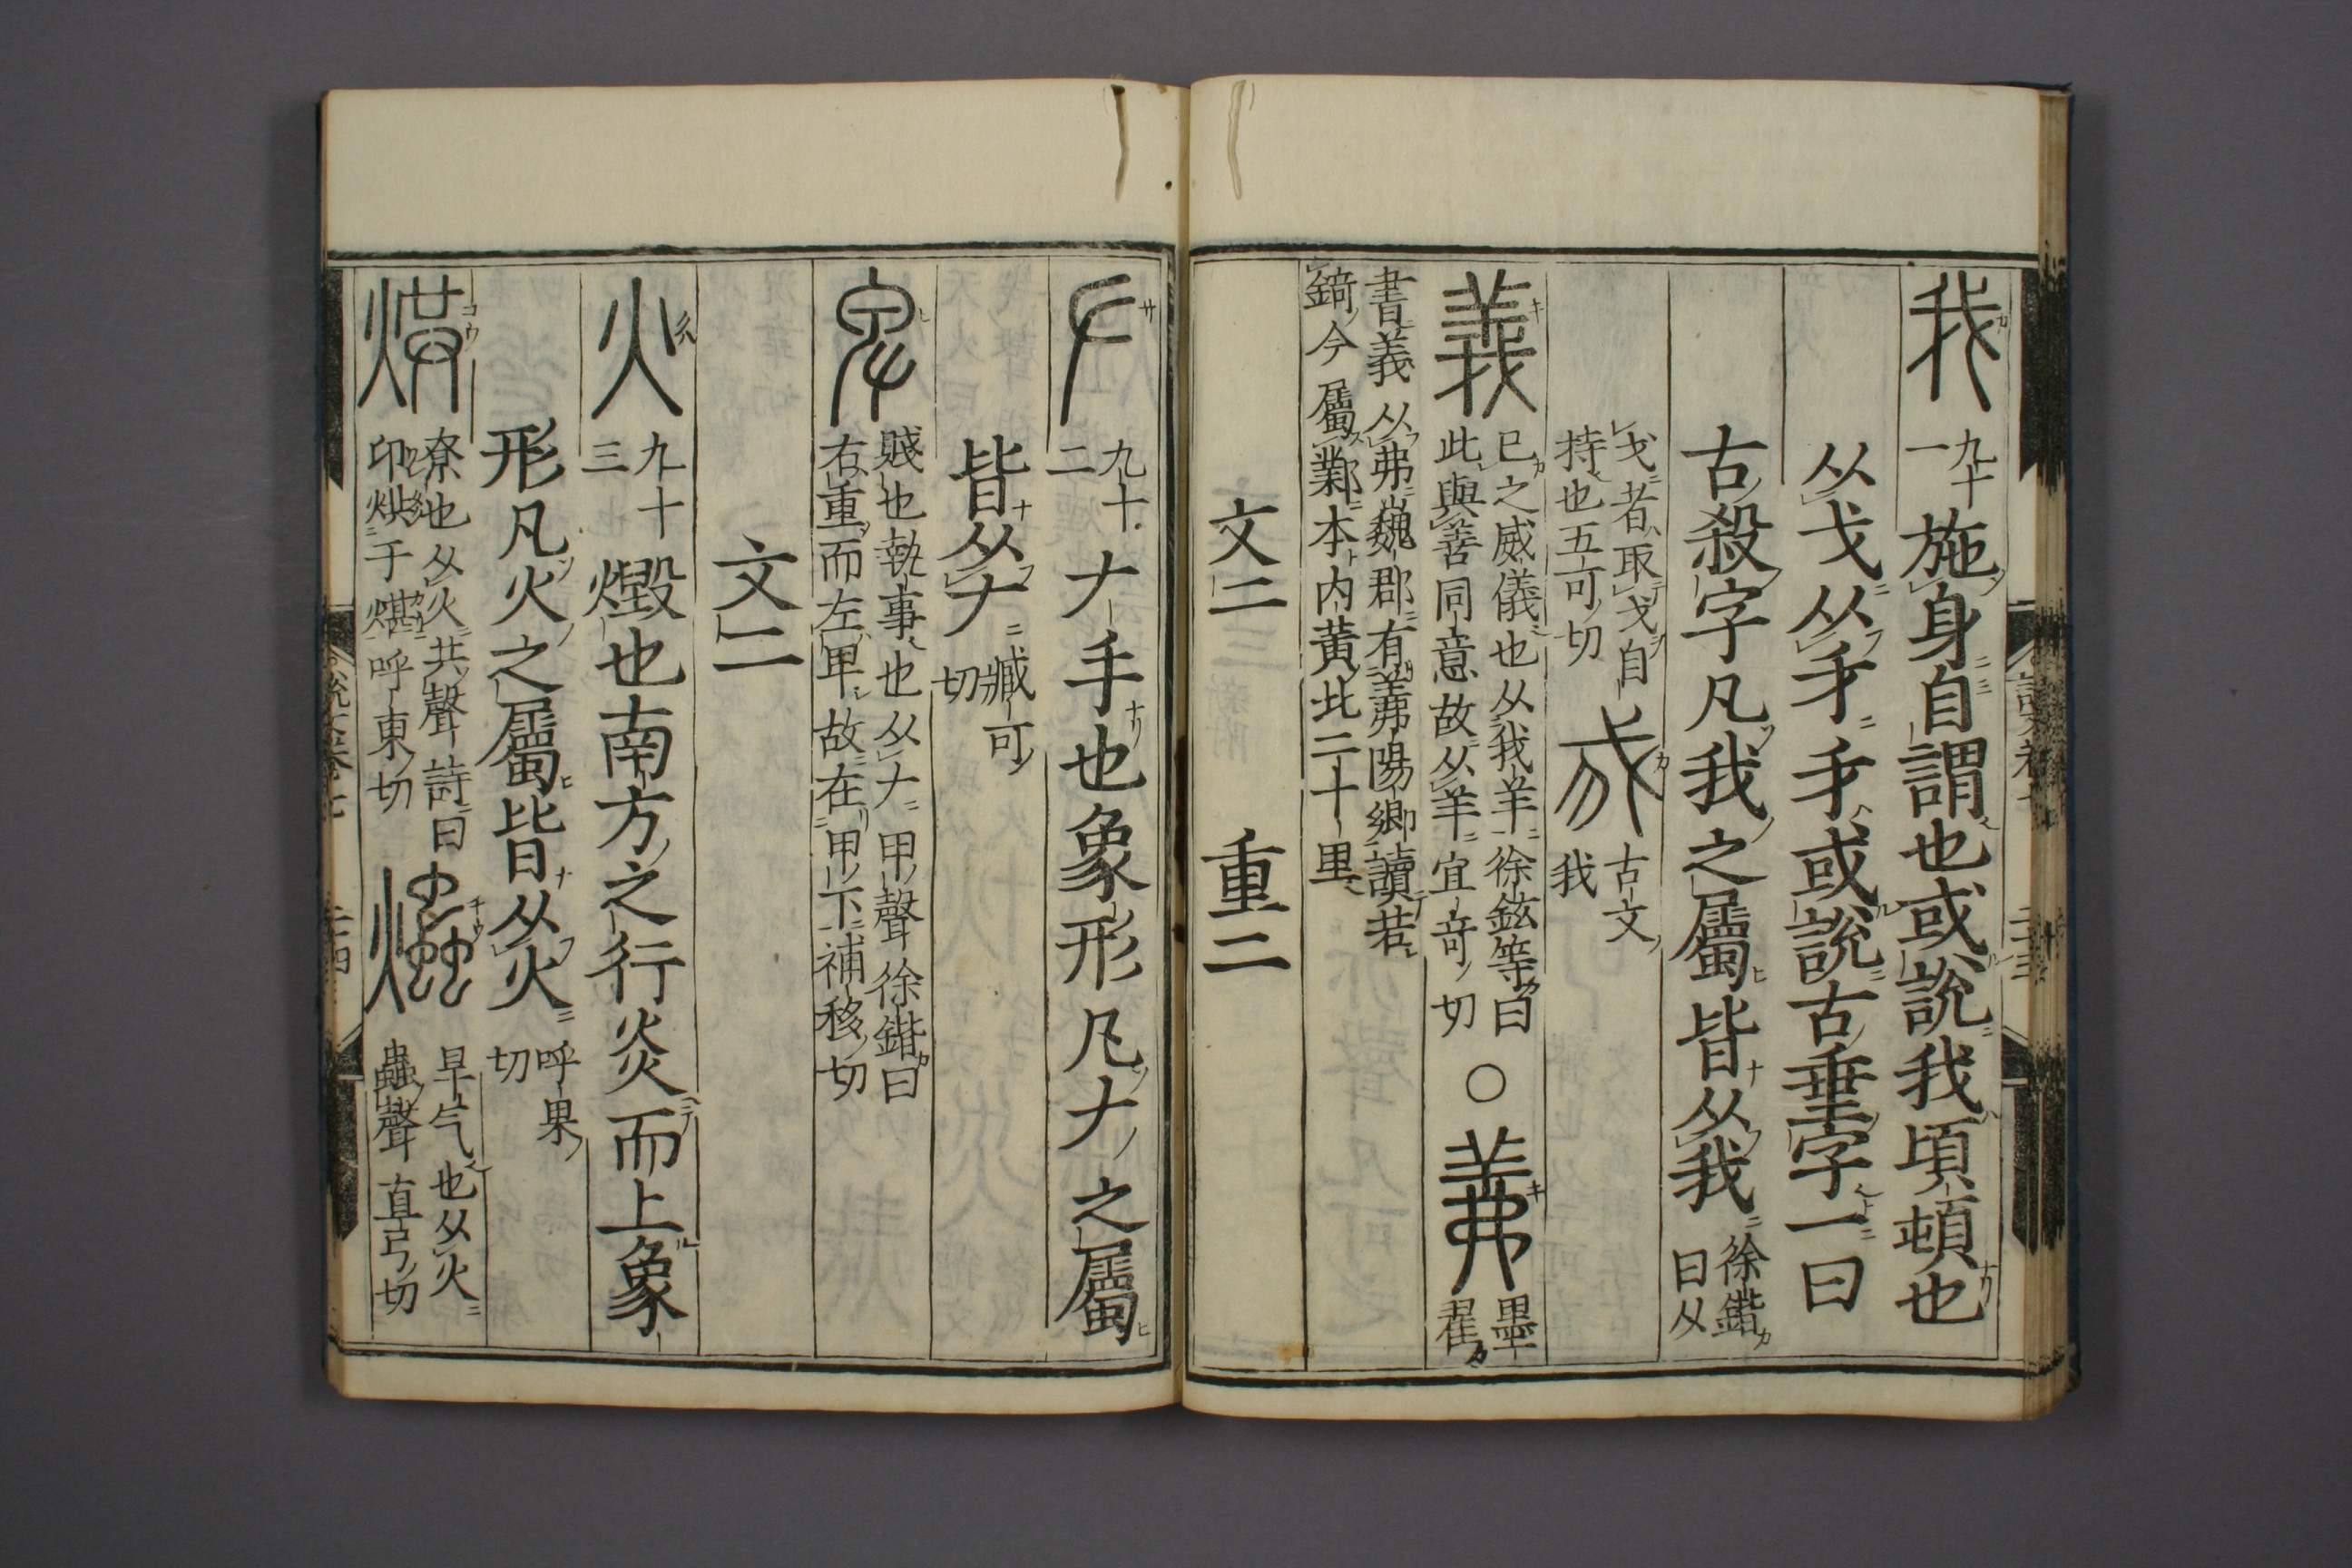 我 九十一 施身自謂也或說我頃頓也
从戈从𠂌𠂌或說古垂字一曰
古殺字凡我之屬皆从我 徐鍇曰从
戈者取戈自持也五可切 𢦠 古文我
義 已之威儀也从我羊 徐鉉等曰此與善同意故从羊宜奇切 〇 羛 墨翟
書義从弗魏郡有羛陽鄉讀若錡今屬鄴本內黃北二十里
文二 重二
𠂇 九十二 𠂇手也象形凡𠂇之屬
皆从𠂇 臧可切
卑 賤也執事也从𠂇甲聲 徐鍇曰右重而左卑故在甲下補移切
文二
火 九十三 燬也南方之行炎而上象
形凡火之屬皆从火 呼果切
烘 尞也从火共聲詩曰卬烘于煁呼東切 爞 旱气也从火蟲聲直弓切